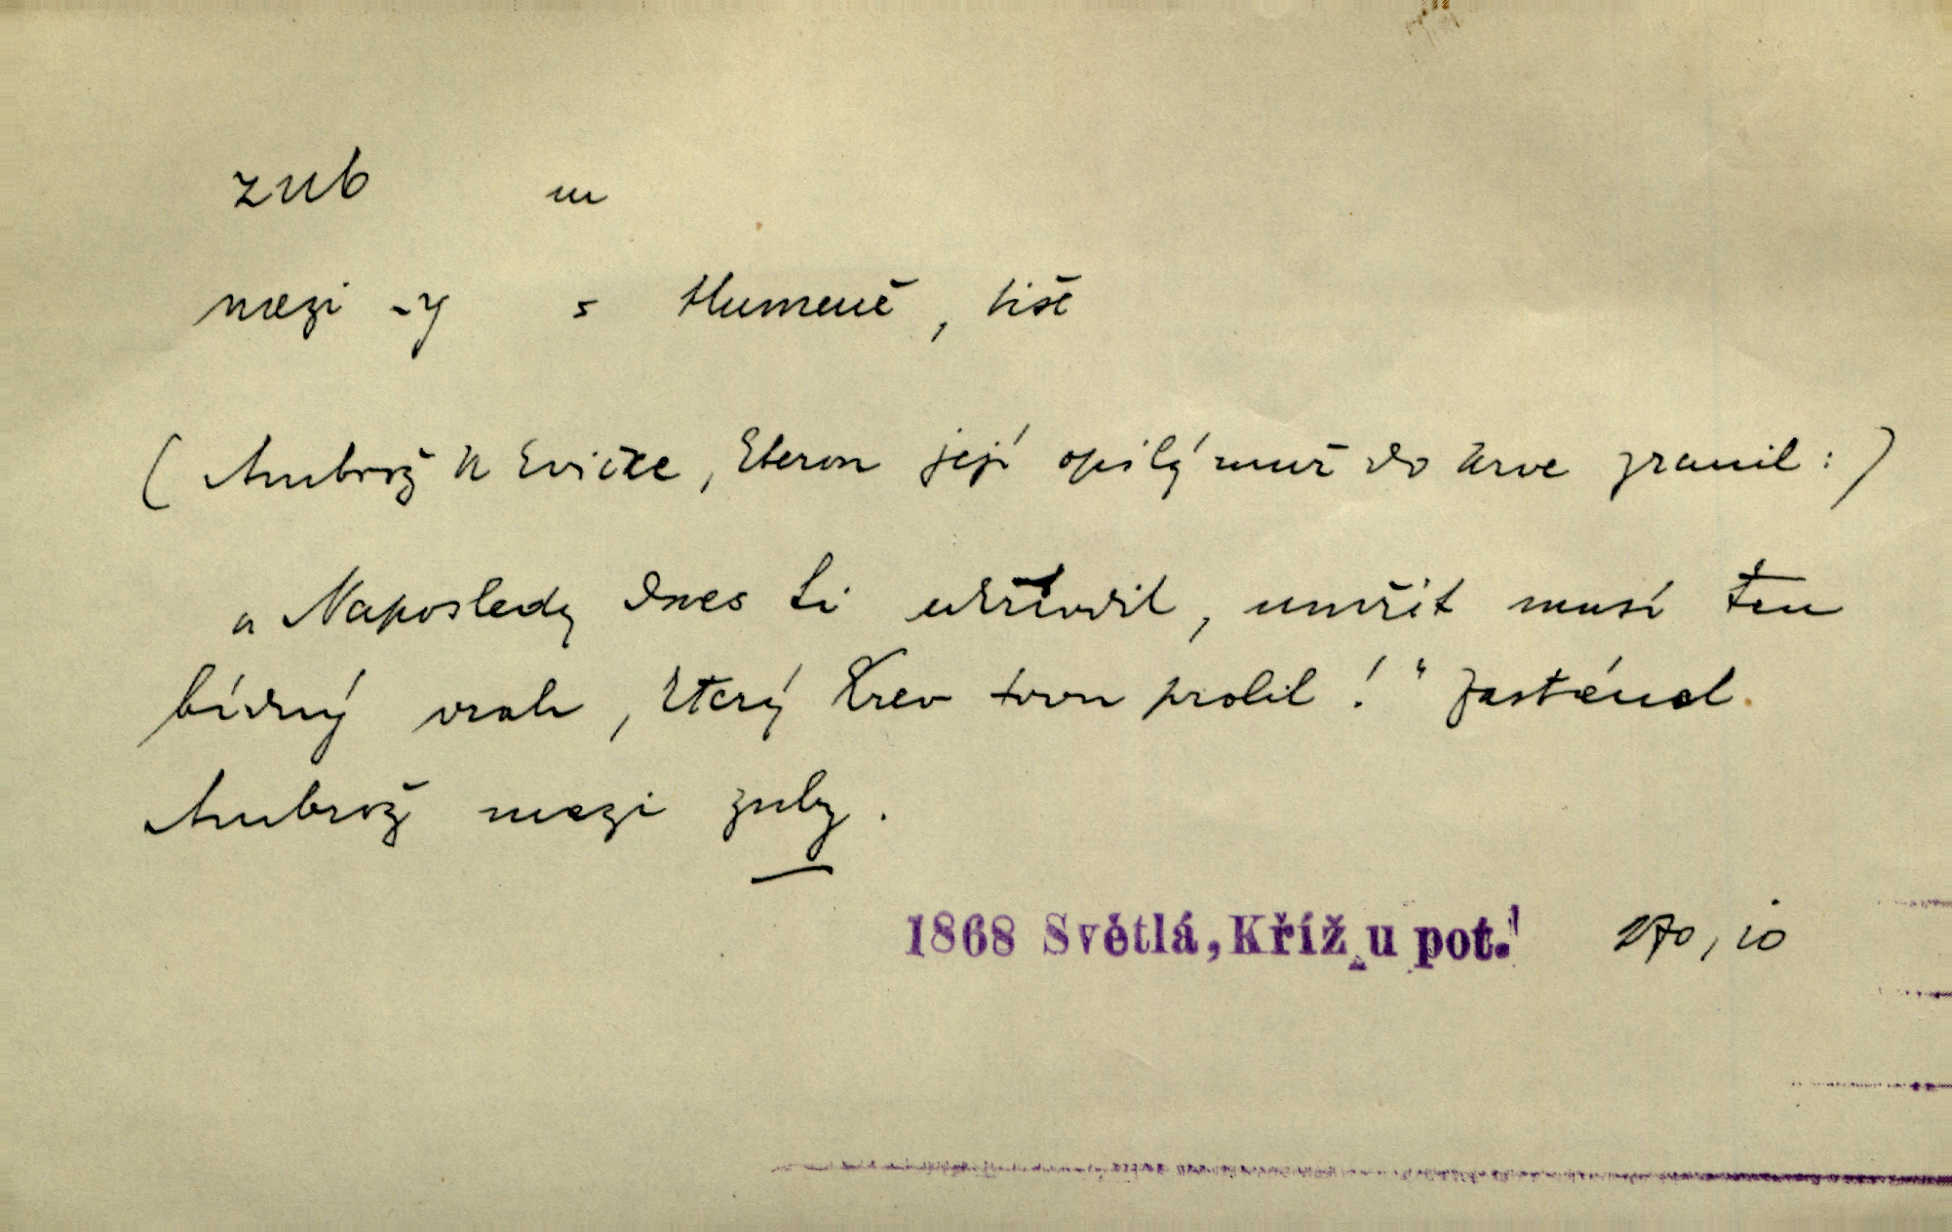 zub m
mezi -y s tlumeně, tiše
(Ambrož k Evičce, kterou její opilý muž do krve zranil:)
„Naposledy dnes ti ukřivdil, umřít musí ten
bídný vrah, který krev tvou prolil!“ zasténal
Ambrož mezi zuby.
1868 Světlá, Kříž u pot. 270, 10